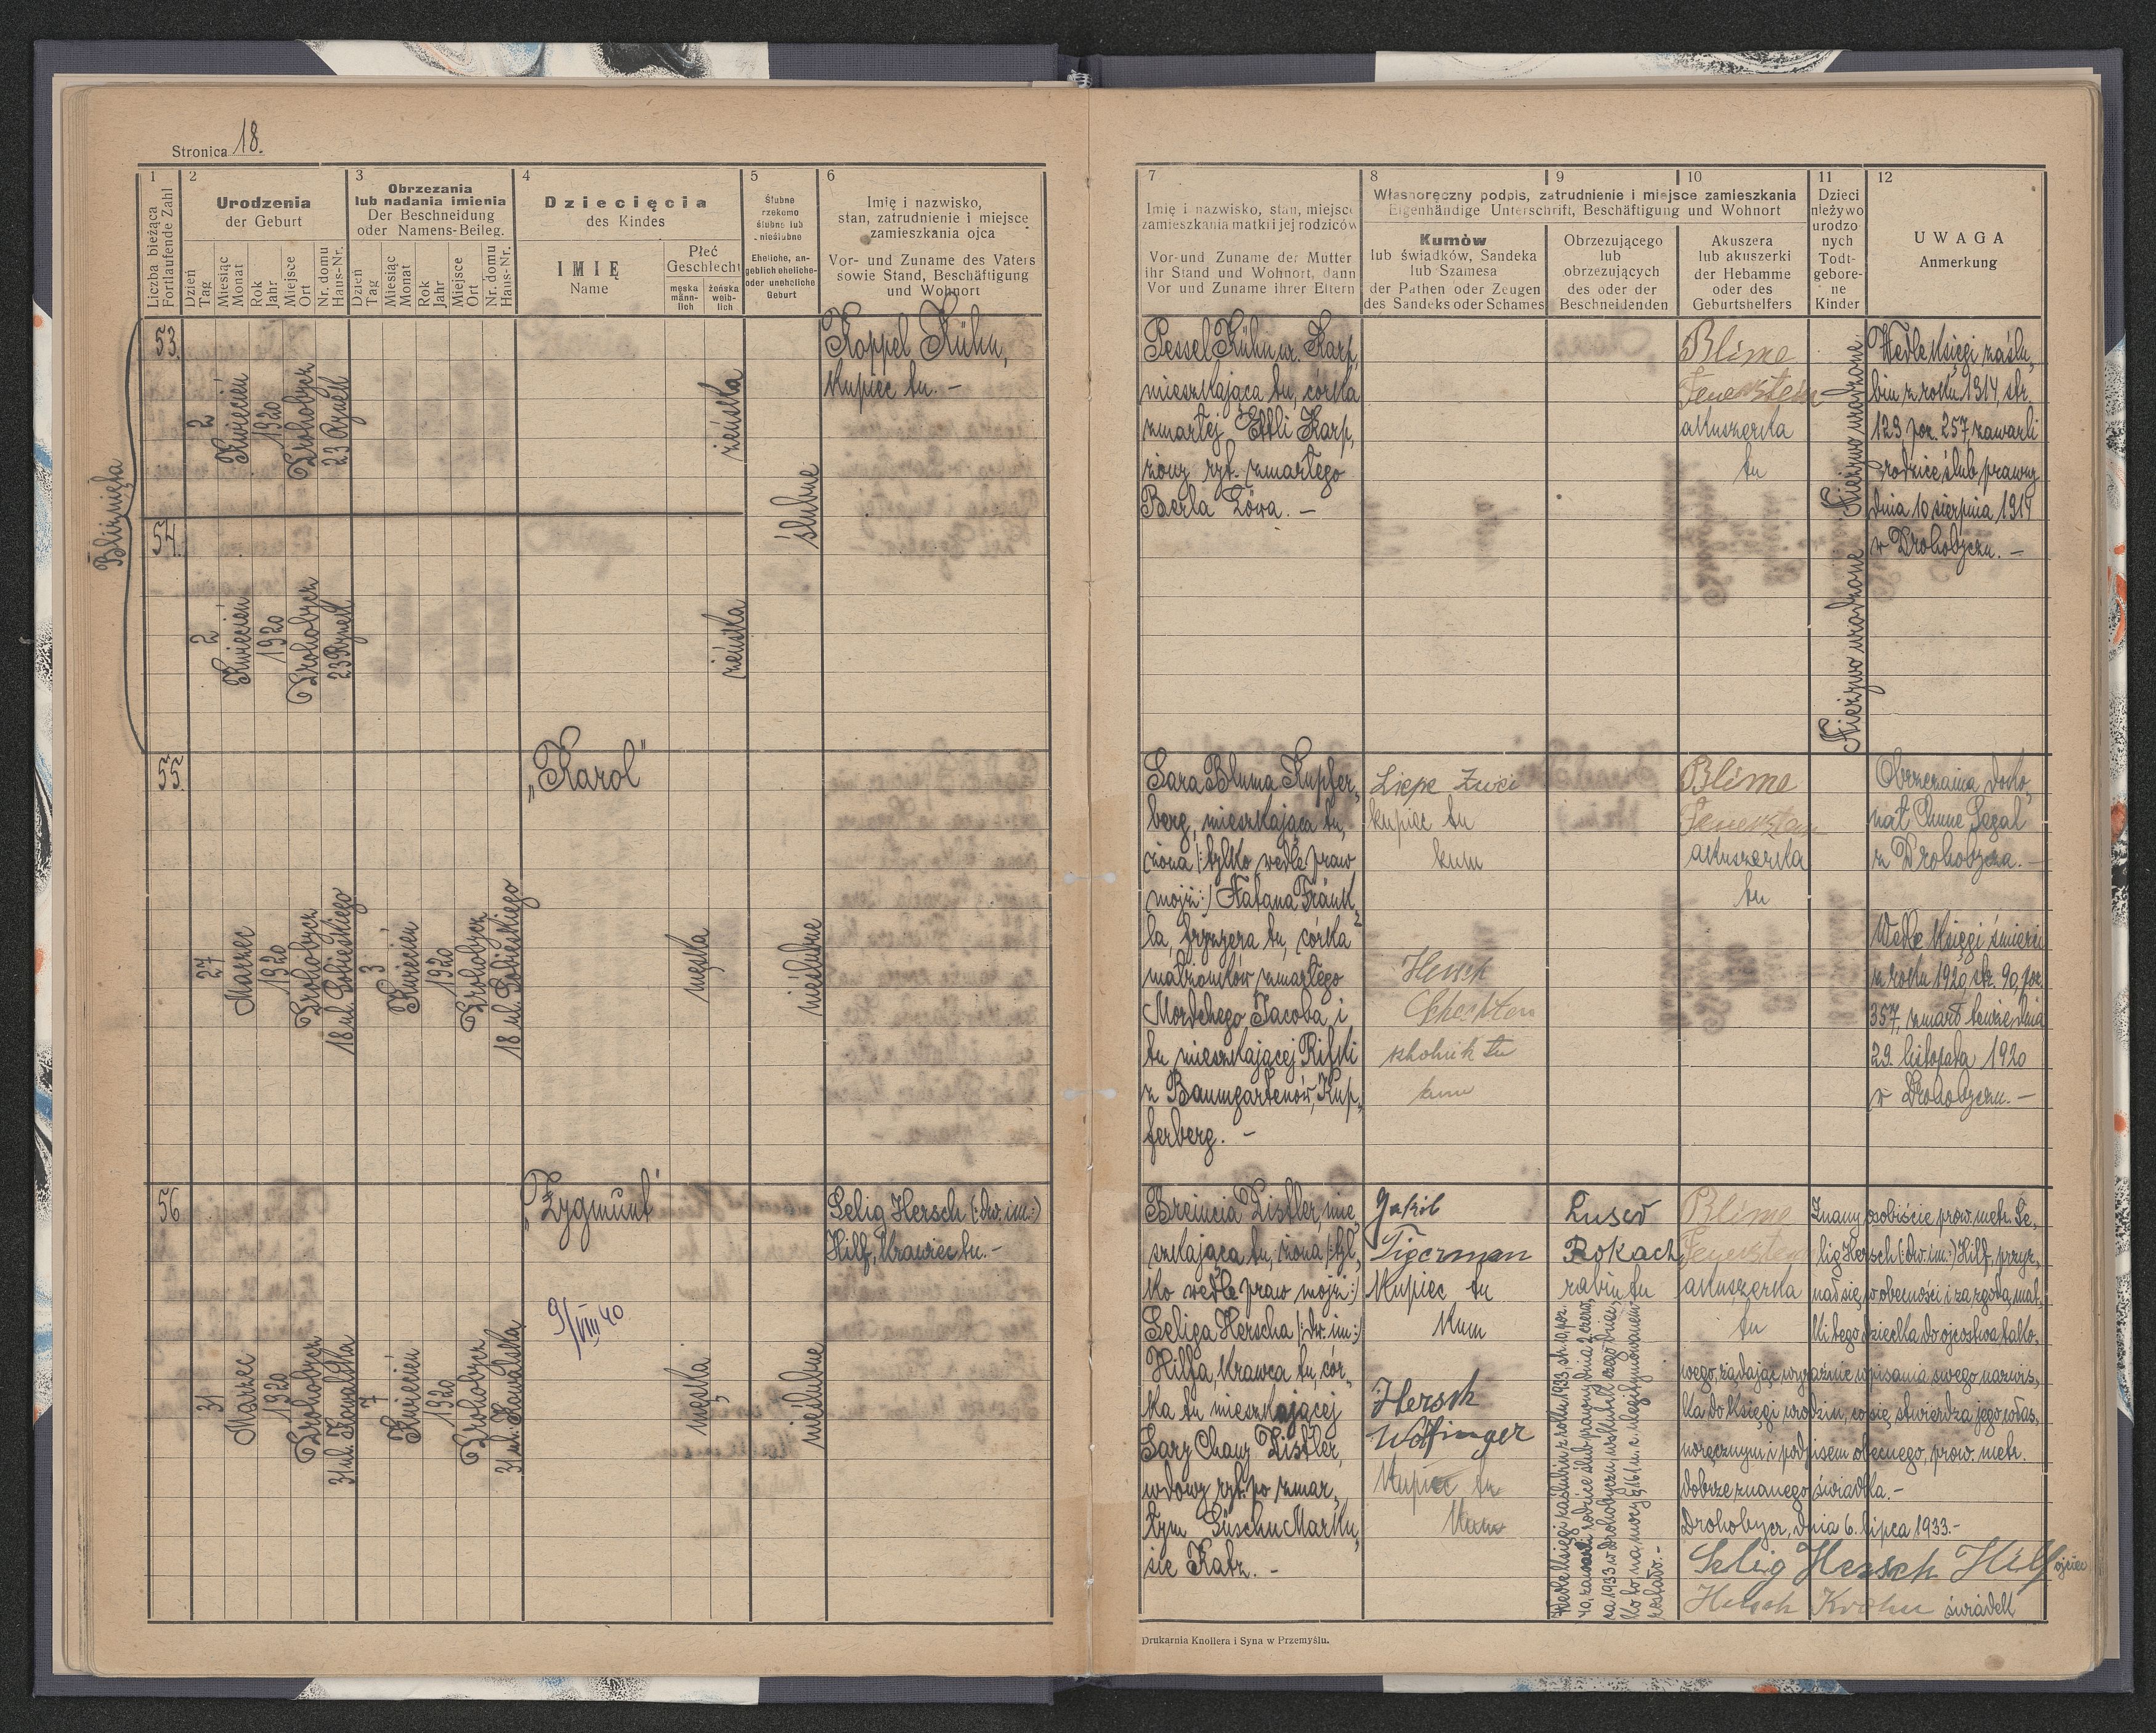 Stronica 18.
1
Liczba bieżąca
Fortlaufende Zahl
2
Urodzenia
der Geburt
Dzień
Tag
Miesiąc
Monat
Rok
Jahr
Miejsce
Ort
Nr. domu
Haus-Nr.
3
Obrzezania
lub nadania imienia
Der Beschneidung
oder Namens-Beileg.
Dzień
Tag
Miesiąc
Monat
Rok
Jahr
Miejsce
Ort
Nr. domu
Haus-Nr.
4
Dziecięcia
des Kindes
IMIĘ
Name
Płeć
Geschlecht
męska
männ-
lich
żeńska
weib-
lich
5
Ślubne
rzekomo
ślubne lub
nieślubne
Eheliche, an-
geblich eheliche-
oder uneheliche
Geburt
6
Imię i nazwisko,
stan, zatrudnienie i miejsce
zamieszkania ojca
Vor- und Zuname des Vaters
sowie Stand, Beschäftigung
und Wohnort
7
Imię i nazwisko, stan, miejsce
zamieszkania matki i jej rodziców
Vor-und Zuname der Mutter
ihr Stand und Wohnort, dann
Vor und Zuname ihrer Eltern
8
9
10
Własnoręczny podpis, zatrudnienie i miejsce zamieszkania
Eigenhändige Unterschrift, Beschäftigung und Wohnort
Kumów
lub świadków, Sandeka
lub Szamesa
der Pathen oder Zeugen
des Sandeks oder Schames
Obrzezującego
lub
obrzezujących
des oder der
Beschneidenden
Akuszera
lub akuszerki
der Hebamme
oder des
Geburtshelfers
11
Dzieci
nieżywo
urodzo
nych
Todt-
gebore-
ne
Kinder
12
UWAGA
Anmerkung
Bliźnięta
53.
2
Kwiecień
1920
Drohobycz
23 Rynek
żeńska
ślubne
Koppel Kühn,
kupiec tu. -
Pessel Kühn ur. Karp,
mieszkająca tu, córka
zmarłej Ettli Karp,
żony ryt. zmarłego
Berla Löwa. -
Blime
Feuerstein
akuszerka
tu
Nieżywo urodzone
Wedle księgi zaślu„
bin z roku 1914, str.
123 poz. 257, zawarli
rodzice ślub prawny
dnia 10 sierpnia 1914
w Drohobyczu. -
54.
2
Kwiecień
1920
Drohobycz
23 Rynek
żeńska
Nieżywo urodzone
55.
27
Marzec
1920
Drohobycz
18 ul. Sobieskiego
3
Kwiecień
1920
Drohobycz
18 ul. Sobieskiego
„Karol"
męska
nieślubne
Sara Bluma Kupfer„
berg, mieszkająca tu,
żona /: tylko wedle praw
mojż:/ Natana Fränk„
la, fryzyera tu, córka
małżonków zmarłego
Mordchego Jacoba i
tu mieszkającej Rifki
z Baumgartenów, Kup„
ferberg. -
kupiec tu
kum
Hersch
tu
kum
Blime
akuszerka
tu
Obrzezania doko„
nał Chune Segal
z Drohobycza. -
Wedle księgi śmierci
z roku 1920, str. 90, poz.
357, zmarł tenże dnia
29. listopada 1920
w Drohobyczu. -
56
31
Marzec
1920
Drohobycz
31 ul. Kowalska
7
Kwiecień
1920
Drohobycz
31 ul. Kowalska
„Zygmunt"
9/VIII 40
męska
nieślubne
Selig Hersch (:dw. im.:)
Hilf, krawiec tu. -
Breincia Distler, mie„
szkająca tu, żona /:tyl„
ko wedle praw mojż:/
Seliga Herscha /:dw. im:/
Hilfa, krawca tu, cór„
ka tu mieszkającej
Sary Chany Distler,
wdowy ryt. po zmar„
łym Süschu Marku„
sie Katz. -
Jakób
Tigerman
kupiec tu
kum
Hersch
Wolfinger
Kupiec tu
Kum
Lused
Rokach
rabin tu
Wedle księgi zaślubin z roku 1933, str. 10, poz.
Blime
Feuerstein
akuszerka
tu
Znany osobiście prow. metr. Se„
lig Hersch (:dw. im:) Hilf, przyz„
nał się, w obecności i za zgodą mat„
ki tego dziecka do ojcostwa tako„
wego, żądając wyraźnie wpisania swego nazwis„
ka do księgi urodzin, co się stwierdza jego włas„
noręcznym i podpisem obecnego, prow. metr.
dobrze znanego świadka. -
Drohobycz, dnia 6. lipca 1933. -
Selig Hersch Hilf ojciec
Hersch Krohn świadek
Drukarnia Knollera i Syna w Przemyślu.